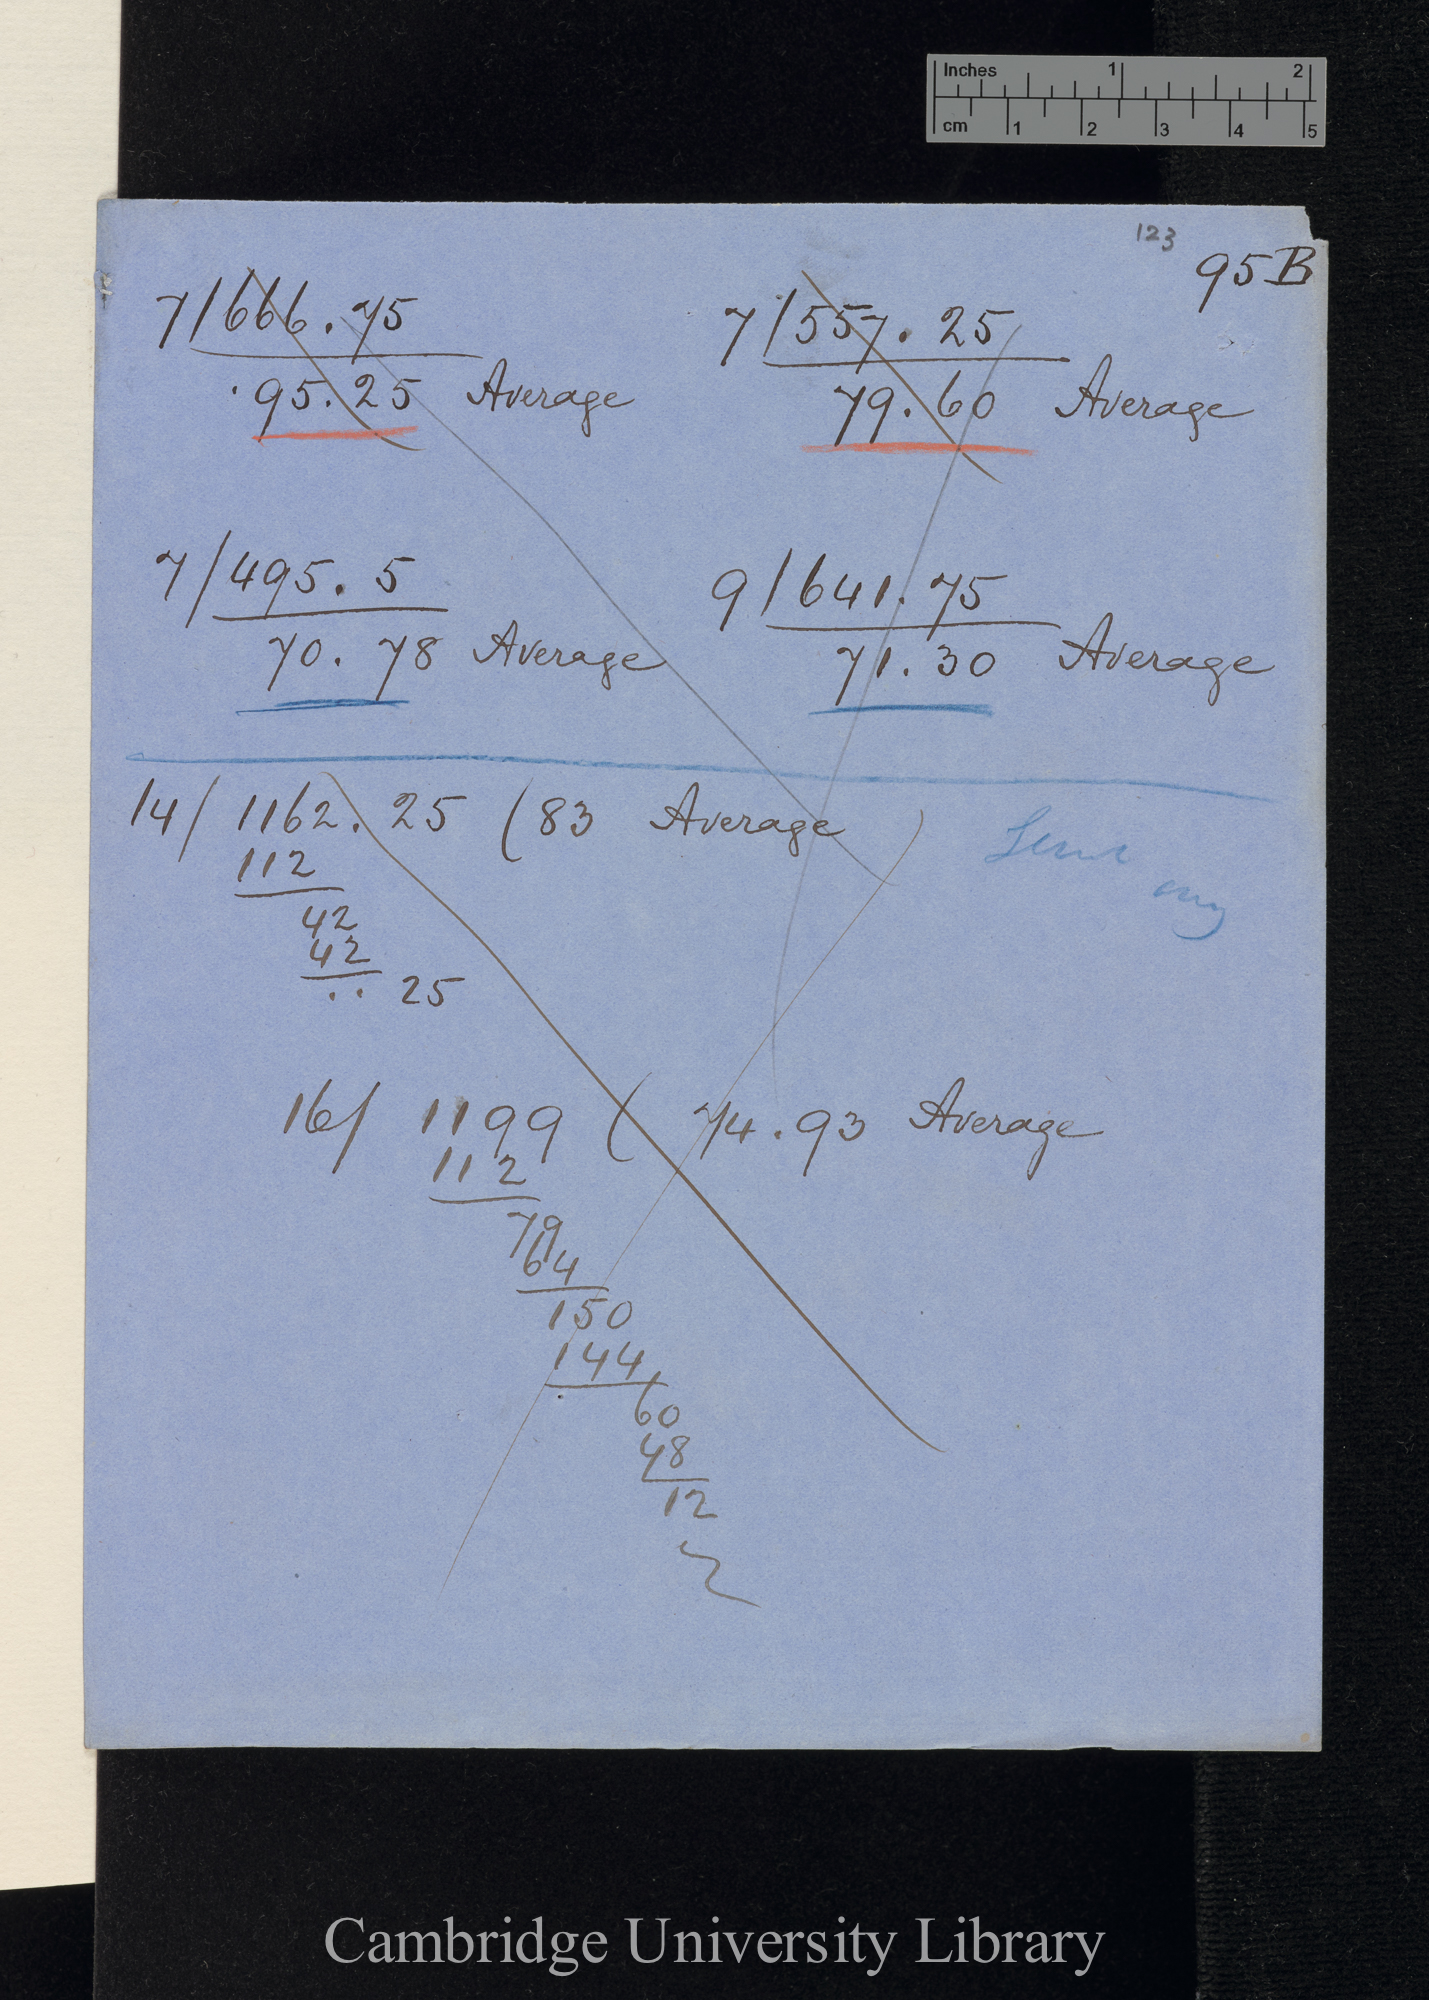 Inches 1 2
cm 1 2 3 4 5
123
95B
7/666.75
95.25 Average
7/557.25
79.60 Average
7/495.5
70.78 Average
9/641.75
71.30 Average
14/ 1162.25 (83 Average
112
42
42
.. 25
16/ 1199 ( 74.93 Average
112
79
64
150
144
60
48
12
Cambridge University Library